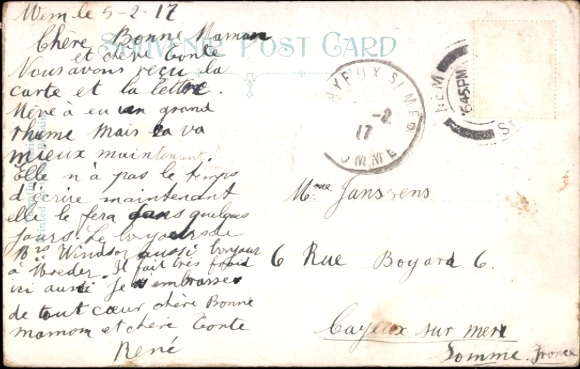 Wem le 5-2.17
SOUVENIR POST CARD
Chère Bonne Maman
et chère Tonte
Nous avons reçu la
carte et la lettre.
Mève à eu un grand
rhume mais ca va
mieux maintenant.
Elle n'à pas le temps
d'écrire maintenant
elle le fera dans quelques
jours. Le bonjours de
Mrs Windsor aussi bonjour
à Woeder. Il fait très froid
ici aussi je vous embrasses
de tout cœur chère Bonne
mamam et chère Tonte
René
-2
17
OMME
WEM
6.45PM
Mme Janssens
6 Rue Boyard 6.
Cayeux sur mer
Somme. France